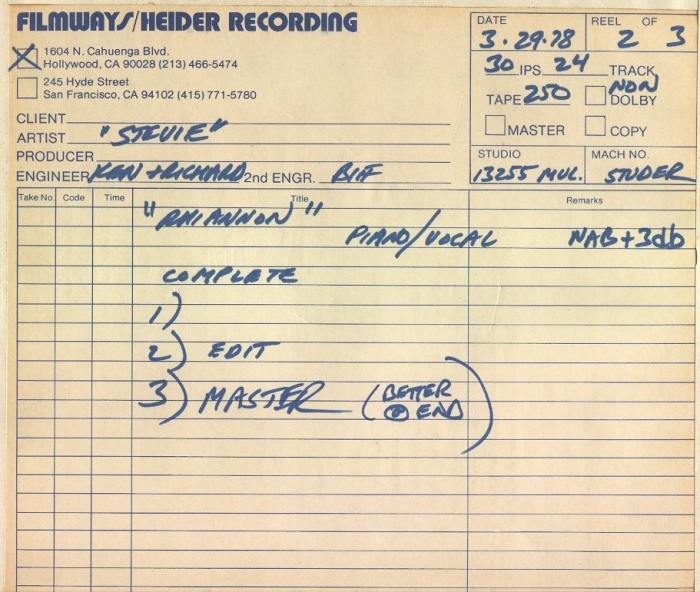 FILMWAYS/HEIDER RECORDING
1604 N. Cahuenga Blvd.
Hollywood, CA 90028 (213) 466-5474
245 Hyde Street
San Francisco, CA 94102 (415) 771-5780
CLIENT
ARTIST "STEVIE"
PRODUCER
ENGINEER KEN + RICHARD 2nd ENGR. BIF
DATE 3·29·78
REEL 2 OF 3
30 IPS 24 TRACK
TAPE 250 NON DOLBY
MASTER COPY
STUDIO 13255 MUL.
MACH NO. STUDER
Take No. Code Time Title Remarks
"RHIANNON"
PIANO/VOCAL NAB+3db
COMPLETE
1)
2) EDIT
3) MASTER (BETTER
@ END)